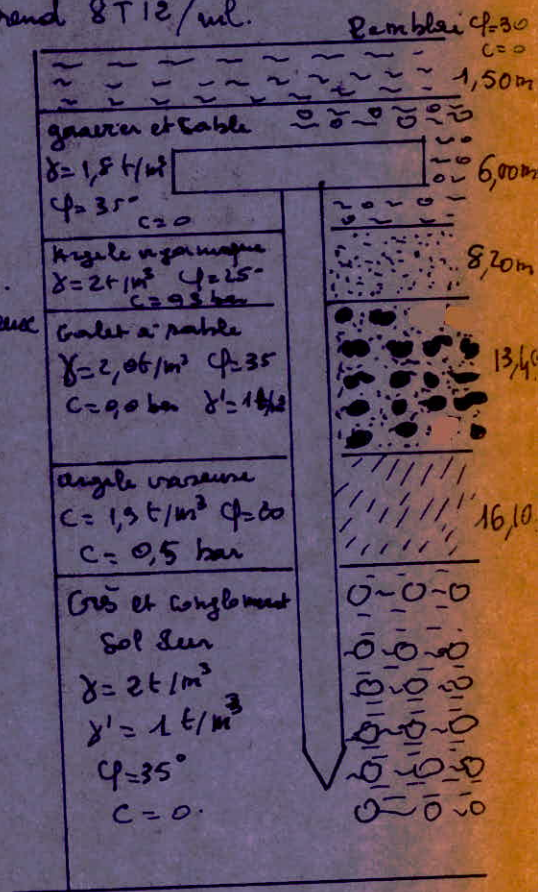 prend 8T12/ml.
Remblai φ=30
c=0
1,50m
gravier et sable
γ=1,8 t/m³
φ=35°
c=0
6,00m
Argile
γ=2t/m³ φ=25°
8,20m
Galet à sable
γ=2,0t/m³ φ=35
C=0,0 bar
13,4
argile vaseuse
C=1,9 t/m³ φ=20
C=0,5 bar
16,10
Grès et conglomerat
Sol dur
γ=2t/m³
γ'=1 t/m³
φ=35°
C=0.